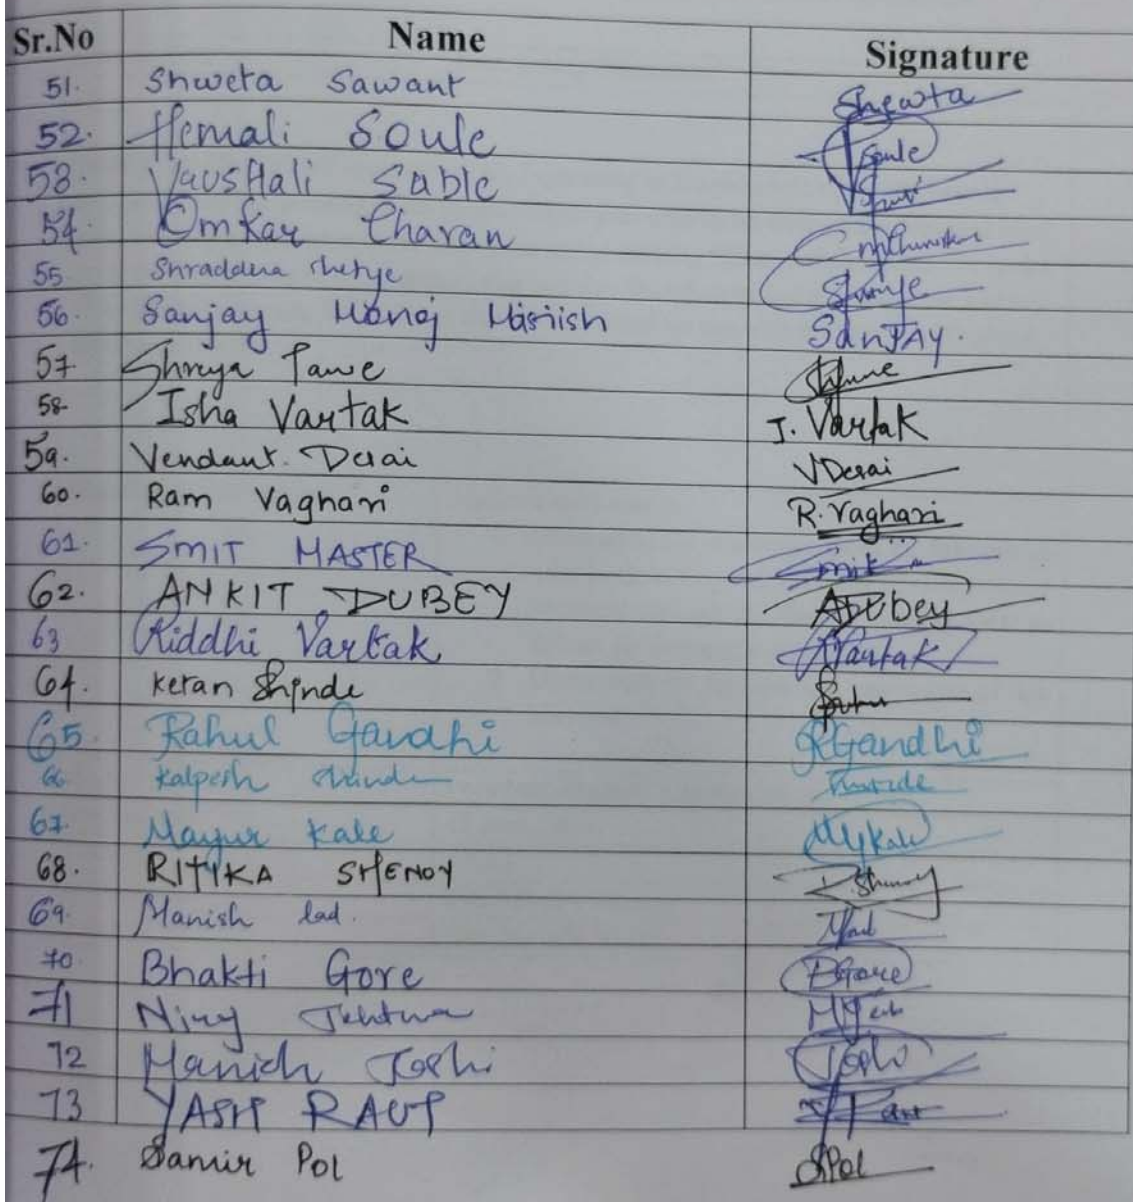 Sr.No Name Signature
51. Shweta Sawant Shewta
52. Hemali Soule Soule
53. Vaushali Sable
54. Omkar Charan
55 Shraddha Shetye
56. Sanjay Manoj Manish SanJAY.
57 Shreya Pawe
58. Isha Vartak I. Vartak
59. Vendant. Desai VDesai
60. Ram Vaghari R. Vaghari
61. SMIT MASTER Smit
62. ANKIT DUBEY ADubey
63 Riddhi Vartak Vartak
64. Ketan Shinde
65. Rahul Gandhi RGandhi
66 Kalpesh
67. Mayur Kale MyKale
68. RITIKA SHENOY R.Shenoy
69. Manish lad. Mlad
70 Bhakti Gore BGore
71
72 Manish Joshi Joshi
73 YASH RAUT
74. Samir Pol SPol